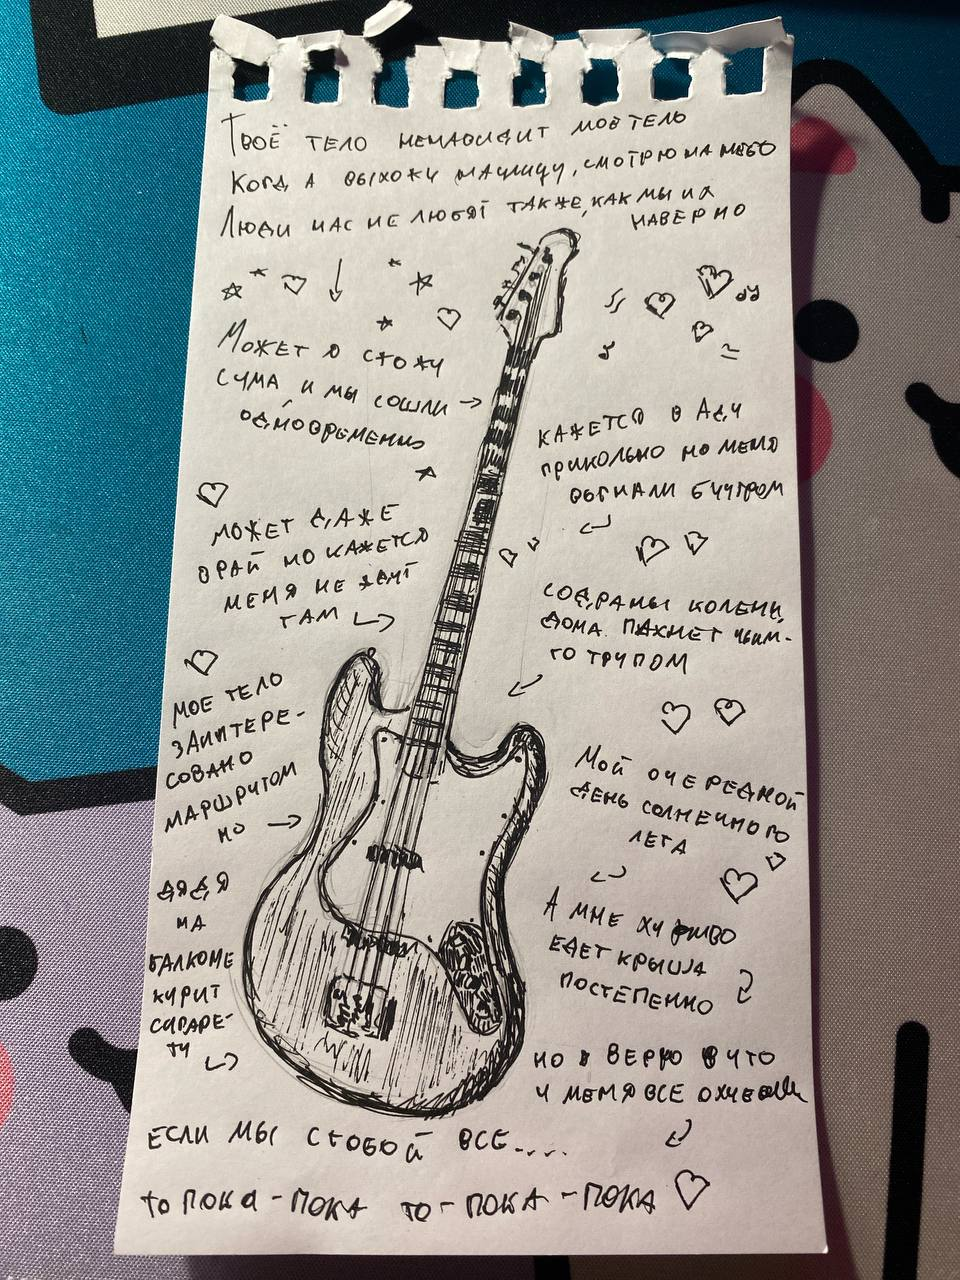 Твоё тело ненавидит моё тело
Когда выхожу на улицу, смотрю на небо
Люди нас не любят также, как мы их
наверно
Может я схожу
с ума и мы сошли
одновременно
кажется в аду
прикольно но меня
выгнали бунтром
может даже
в рай но кажется
меня не ждут
там
содраны колени,
дома пахнет чьим-
то трупом
мое тело
заинтере-
совано
маршрутом
но
Мой очередной
день солнечного
лета
дядя
на
балконе
курит
сигаре-
ты
А мне ху
едет крыша
постепенно
но я верю в что
у меня все охуенно
если мы с тобой все....
то пока-пока то-пока-пока